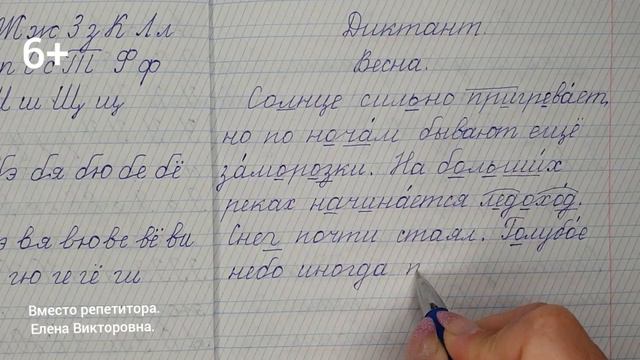 6+
Ж ж З з К Л л
п О с Т Ф ф
Ш ш Щ щ
бя бю бе бё
э вя вю ве вё ви
гю ге гё ги
Диктант.
Весна.
Солнце сильно пригревает,
но по ночам бывают ещё
заморозки. На больших
реках начинается ледоход.
Снег почти стаял. Голубое
небо иногда п
Вместо репетитора.
Елена Викторовна.